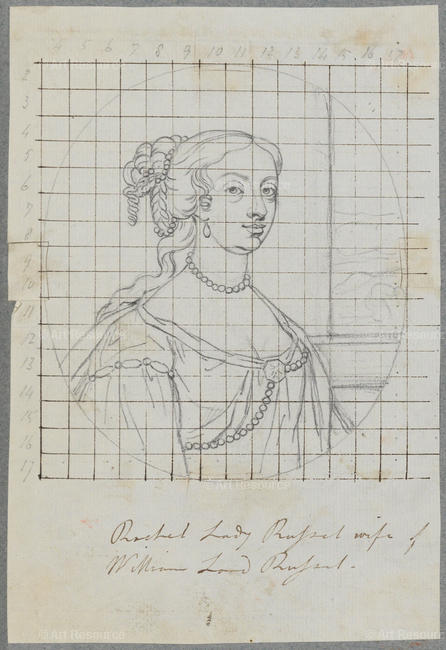 4 5 6 7 8 9 10 11 12 13 14 15 16 17
2
3
4
5
6
7
8
9
10
11
12
13
14
15
16
17
Rachel Lady Russel wife of
William Lord Russel.
© Art Resource
© Art Resource